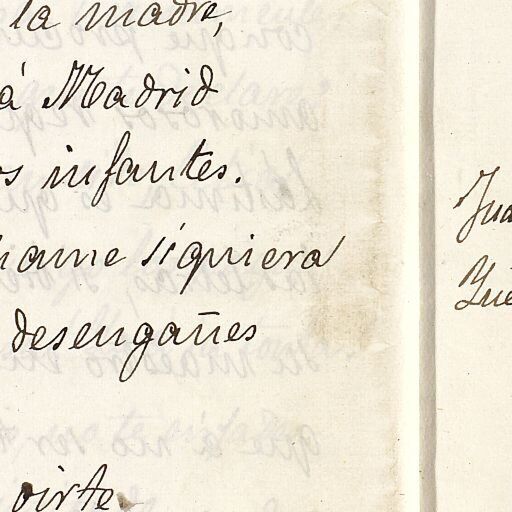 la madre,
á Madrid
os infantes.
hame siquiera
desengañes
oirte.
Jua
Que